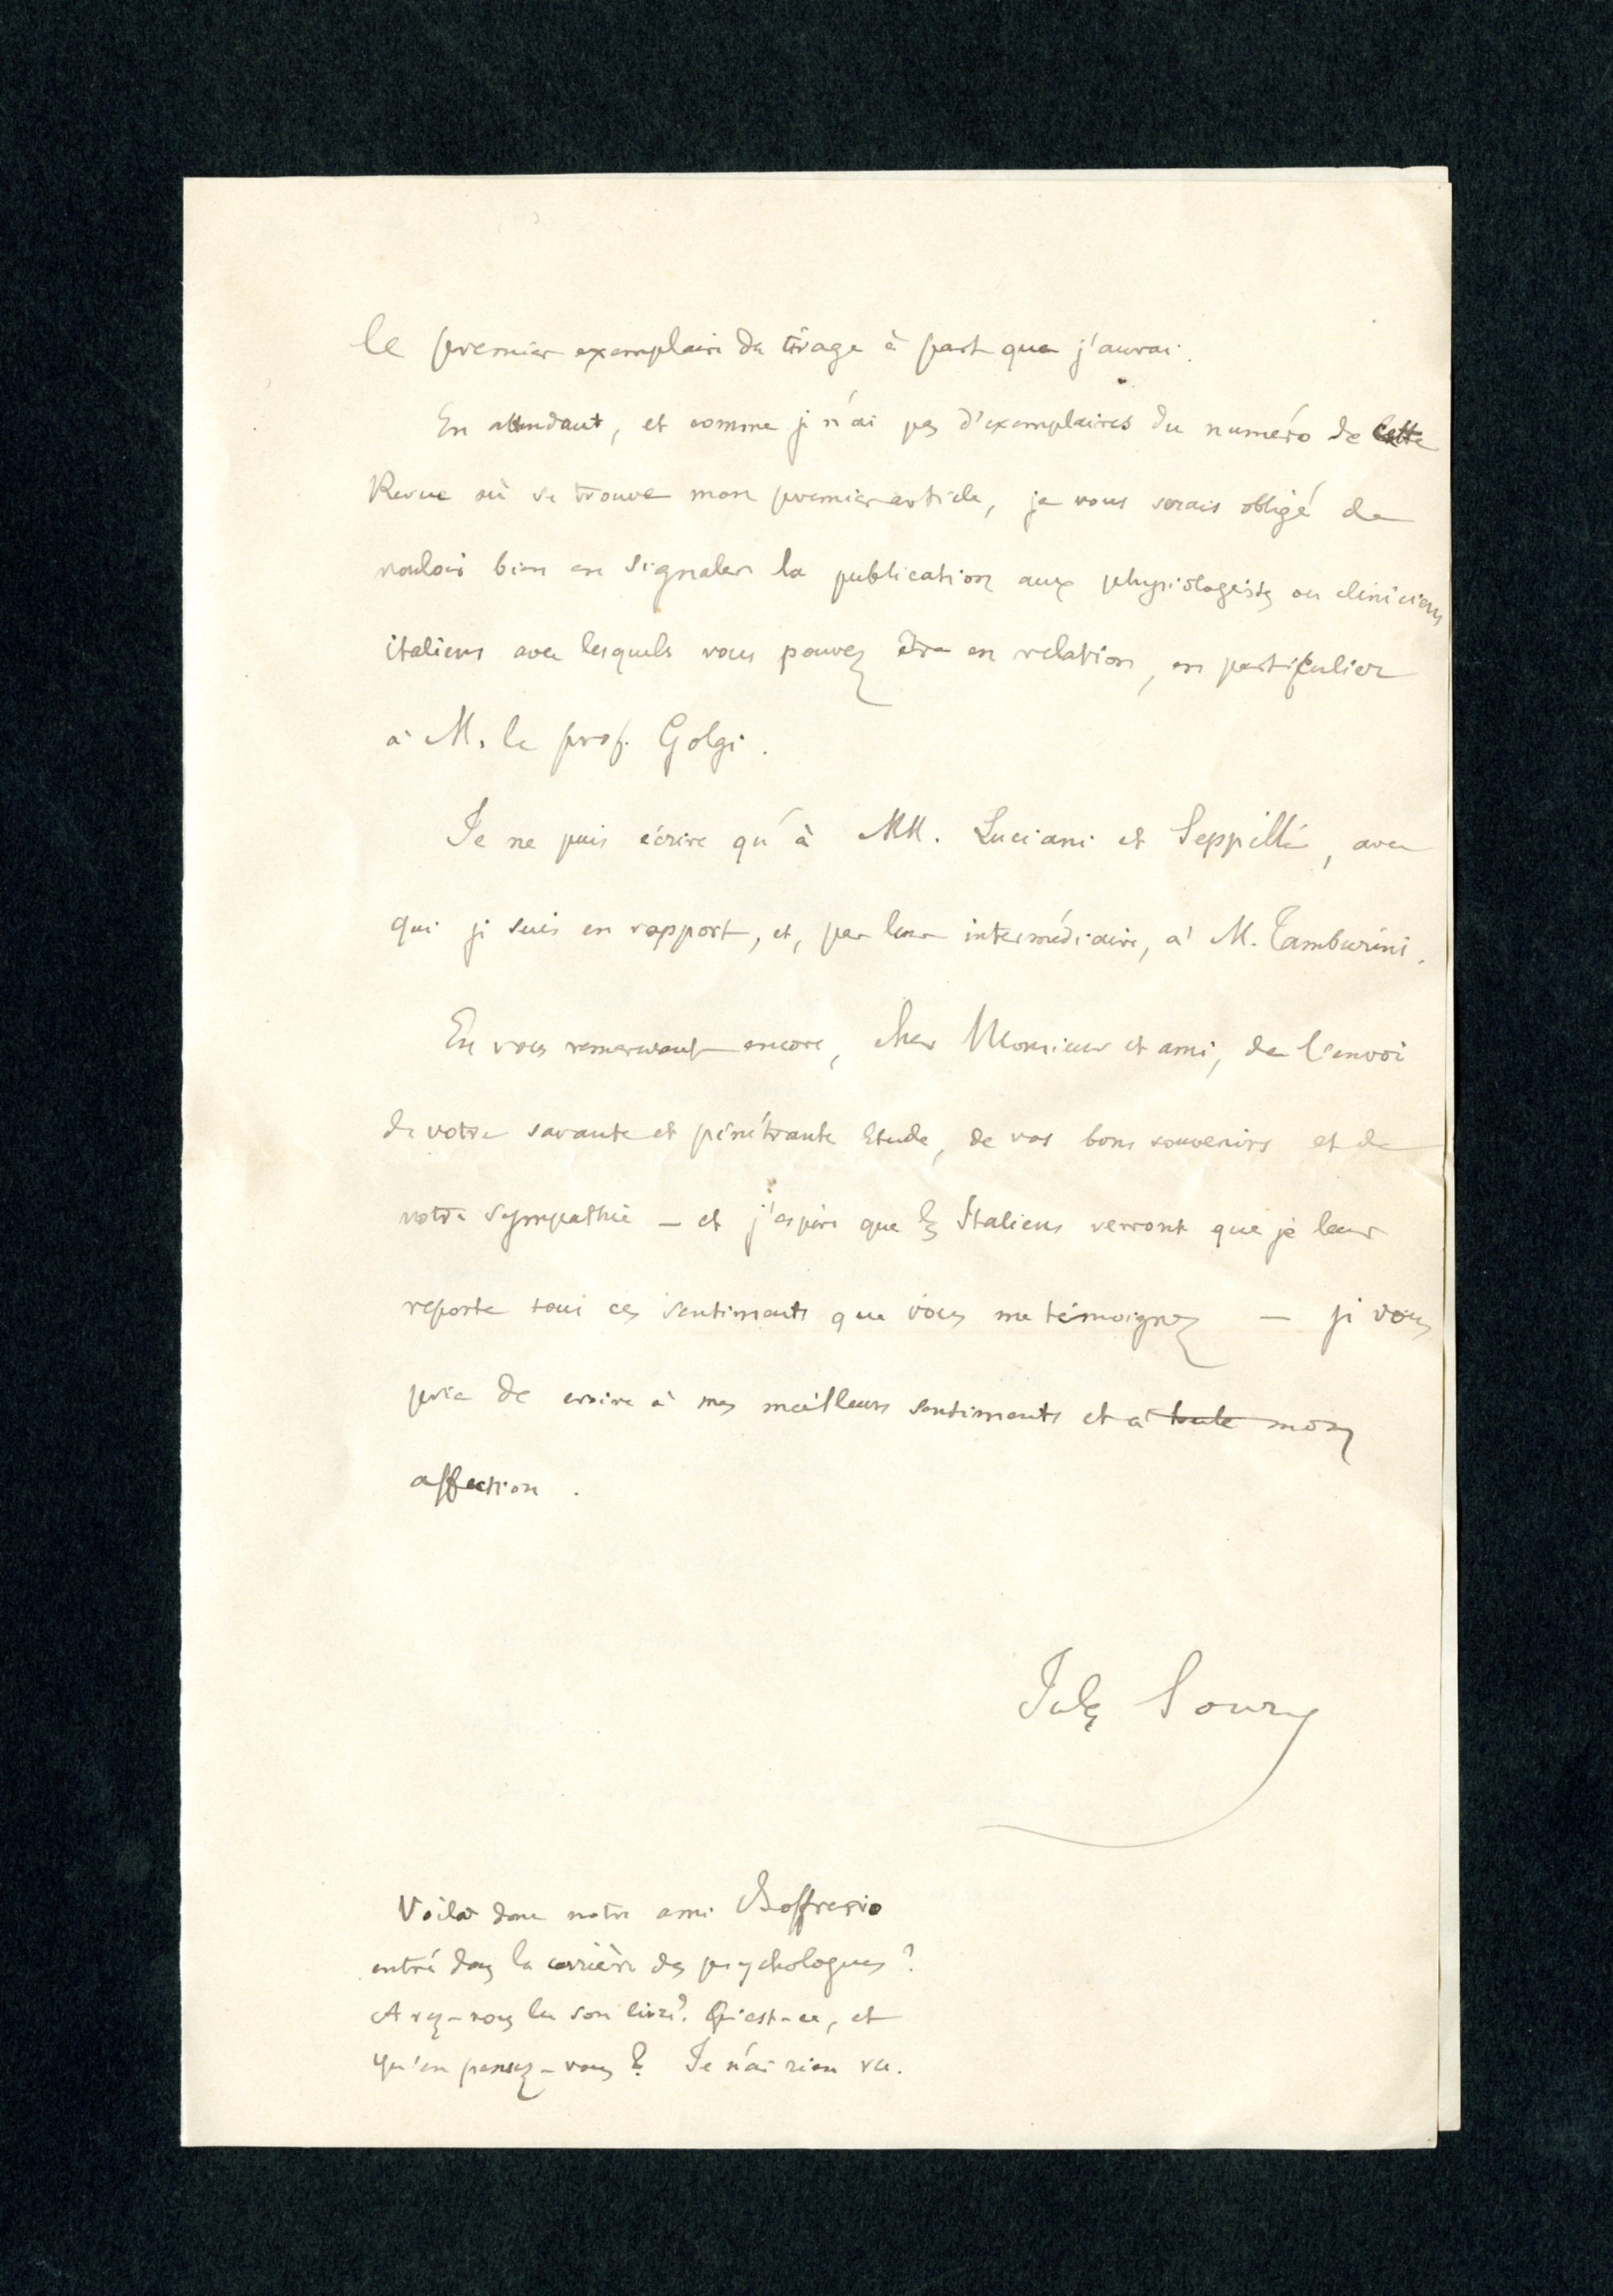 le premier exemplaire du tirage à part que j'aurai.
En attendant, et comme je n'ai pas d'exemplaires du numéro de cette
Revue où se trouve mon premier article, je vous serais obligé de
vouloir bien en signaler la publication aux physiologistes ou cliniciens
italiens avec lesquels vous pouvez être en relation, en particulier
à M. le prof. Golgi.
Je ne puis écrire qu'à MM. Luciani et Seppilli, avec
qui je suis en rapport, et, par leur intermédiaire, à M. Tamburini.
En vous remerciant encore, cher Monsieur et ami, de l'envoi
de votre savante et pénétrante Etude, de vos bons souvenirs et de
votre sympathie — et j'espère que les Italiens verront que je leur
reporte tous ces sentiments que vous me témoignez — je vous
prie de croire à mes meilleurs sentiments et à toute mon
affection.
Jules Soury
Voilà donc notre ami
entré dans la carrière des psychologues?
Avez-vous lu son livre? Qu'est-ce, et
qu'en pensez-vous? Je n'ai rien vu.